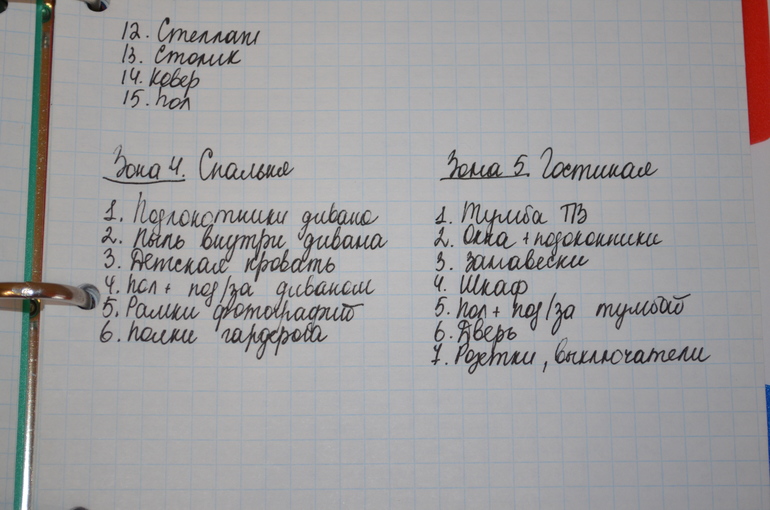 12. Стеллаж
13. Столик
14. Ковер
15. Пол
Зона 4. Спальня
1. Подлокотники дивана
2. Пыль внутри дивана
3. Детская кровать
4. Пол + под/за диваном
5. Рамки фотографий
6. Полки гардероба
Зона 5. Гостиная
1. Тумба ТВ
2. Окна + подоконники
3. Занавески
4. Шкаф
5. Пол + под/за тумбой
6. Дверь
7. Розетки, выключатели